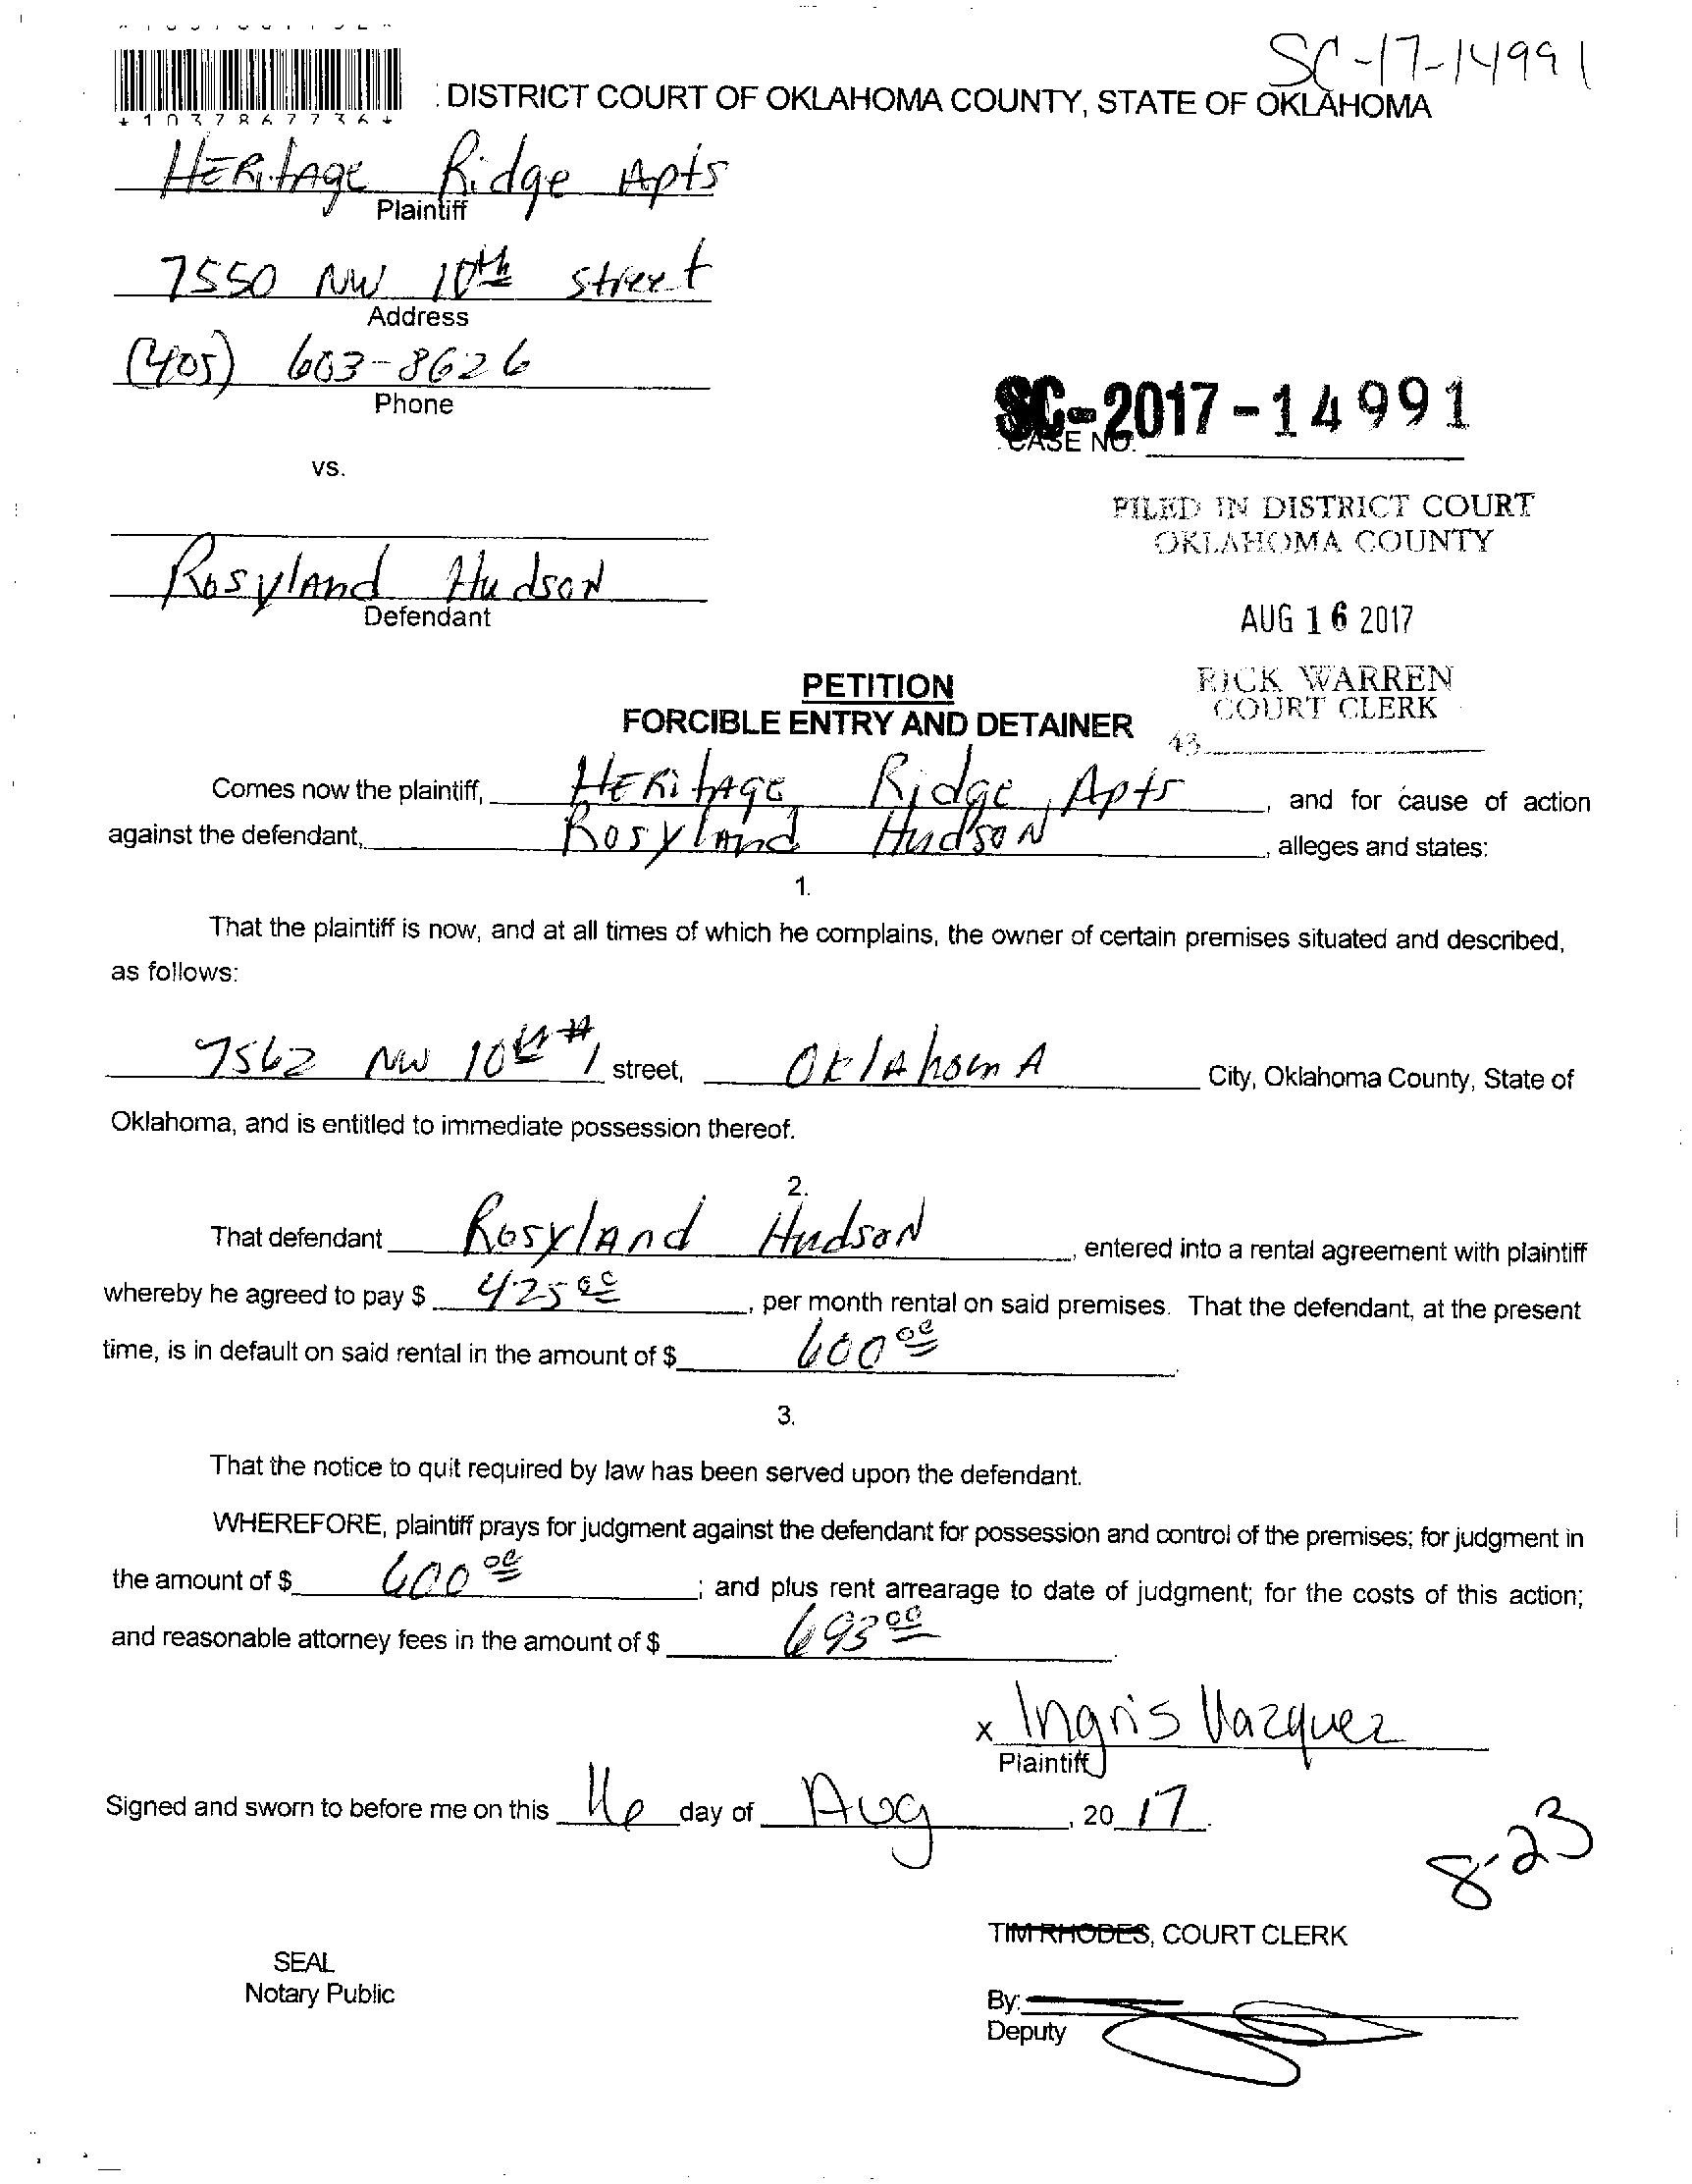 SC-17-14991
DISTRICT COURT OF OKLAHOMA COUNTY, STATE OF OKLAHOMA
*1037867736*
HERitAge Ridge Apts
Plaintiff
7550 NW 10th street
Address
(405) 603-8626
Phone
SC-2017-14991
CASE NO.
vs.
FILED IN DISTRICT COURT
OKLAHOMA COUNTY
RosylAnd HudsoN
Defendant
AUG 16 2017
PETITION
RICK WARREN
COURT CLERK
FORCIBLE ENTRY AND DETAINER
43
Comes now the plaintiff, HERitAge Ridge Apts, and for cause of action
against the defendant, RosylAnd HudsoN, alleges and states:
1.
That the plaintiff is now, and at all times of which he complains, the owner of certain premises situated and described,
as follows:
7562 NW 10th #1 street, OklAhomA City, Oklahoma County, State of
Oklahoma, and is entitled to immediate possession thereof.
2.
That defendant RosylAnd HudsoN, entered into a rental agreement with plaintiff
whereby he agreed to pay $ 425 00, per month rental on said premises. That the defendant, at the present
time, is in default on said rental in the amount of $ 600 00.
3.
That the notice to quit required by law has been served upon the defendant.
WHEREFORE, plaintiff prays for judgment against the defendant for possession and control of the premises; for judgment in
the amount of $ 600 00; and plus rent arrearage to date of judgment; for the costs of this action;
and reasonable attorney fees in the amount of $ 693 00.
x Ingris Vazquez
Plaintiff
Signed and sworn to before me on this 16 day of Aug, 20 17.
8-23
TIM RHODES, COURT CLERK
SEAL
Notary Public
By:
Deputy